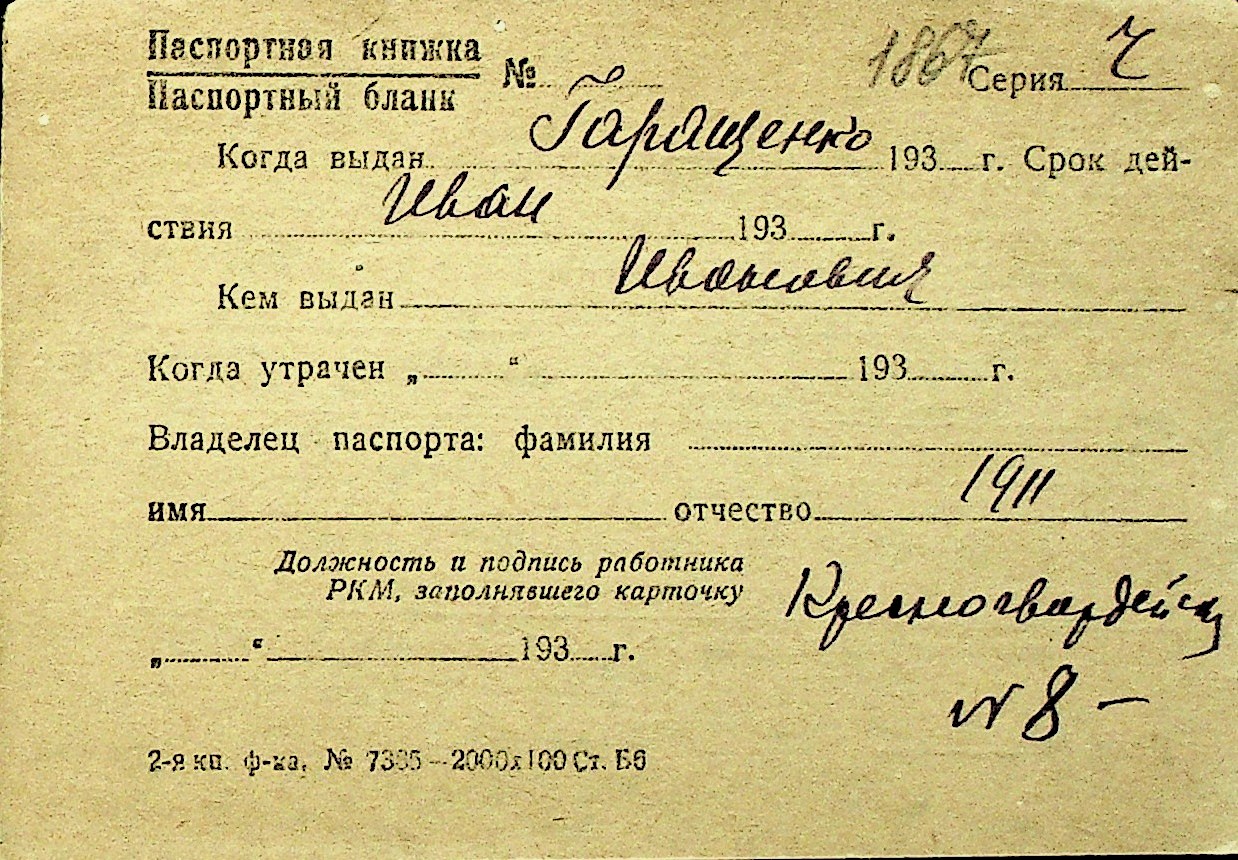 Паспортная книжка
Паспортный бланк № 1867 Серия Ч
Когда выдан Гаращенко 193 г. Срок дей-
ствия Иван 193 г.
Кем выдан Иванович
Когда утрачен „ “ 193 г.
Владелец паспорта: фамилия
имя отчество 1911
Должность и подпись работника
РКМ, заполнявшего карточку
Красногвардейск
„ “ 193 г.
N 8 —
2-я кп. ф-ка, № 7385—2000х100 Ст. Б6